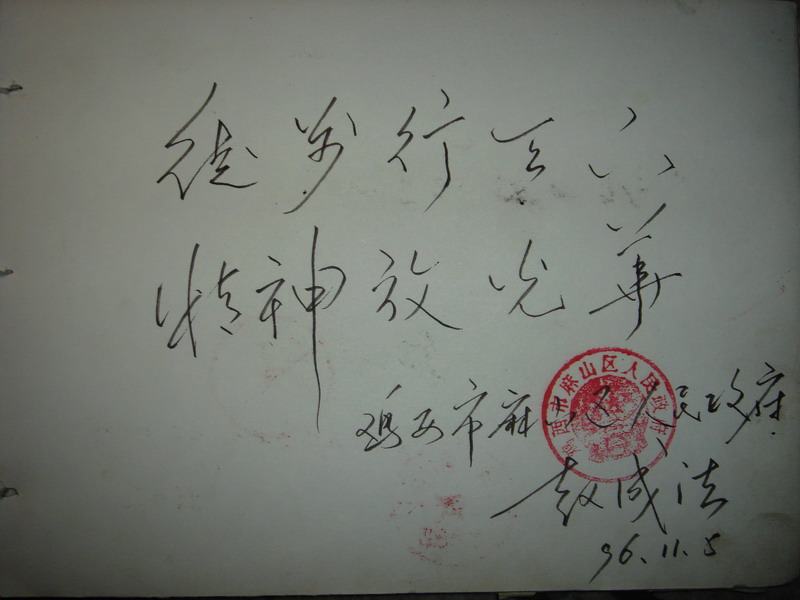 徒步行天下
精神放光华
鸡西市麻山区人民政府
赵成法
96.11.5
鸡西市麻山区人民政府